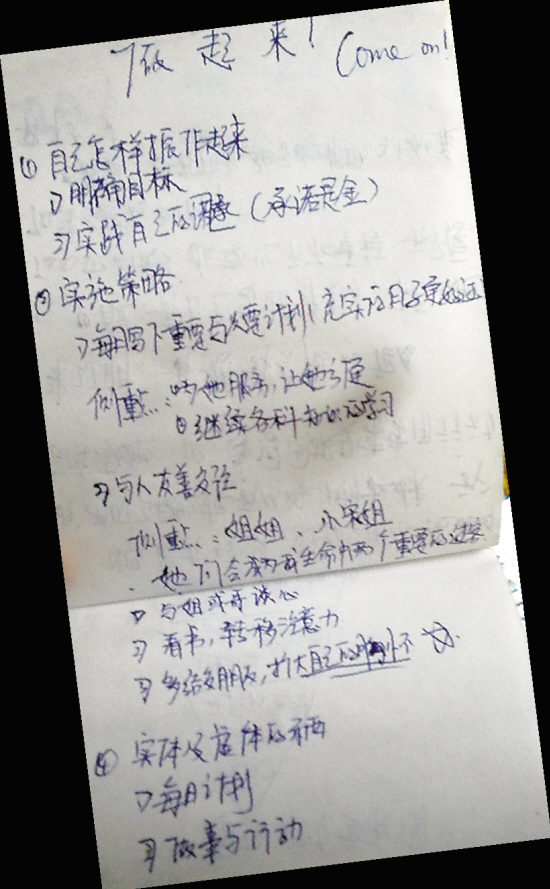 做起来! Come on!
① 自己怎样振作起来
1) 明确目标
2) 实践自己的诺言(承诺是金)
② 实施策略
1) 每日写下重要与次要计划,充实
侧重点:①为她服务,让她方便
②继续各科知识的学习
2) 与人友善交往
侧重点:姐姐、小宋姐
她们会成为我生命中两个重要的
1) 与姐或哥谈心
2) 看书,转移注意力
3) 多结交朋友,扩大自己的
④ 实体及虚体的
1) 每日计划
2) 做事与行动